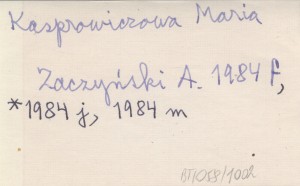 Kasprowiczowa Maria
Zaczyński A. 1984 f,
*1984 j, 1984 m